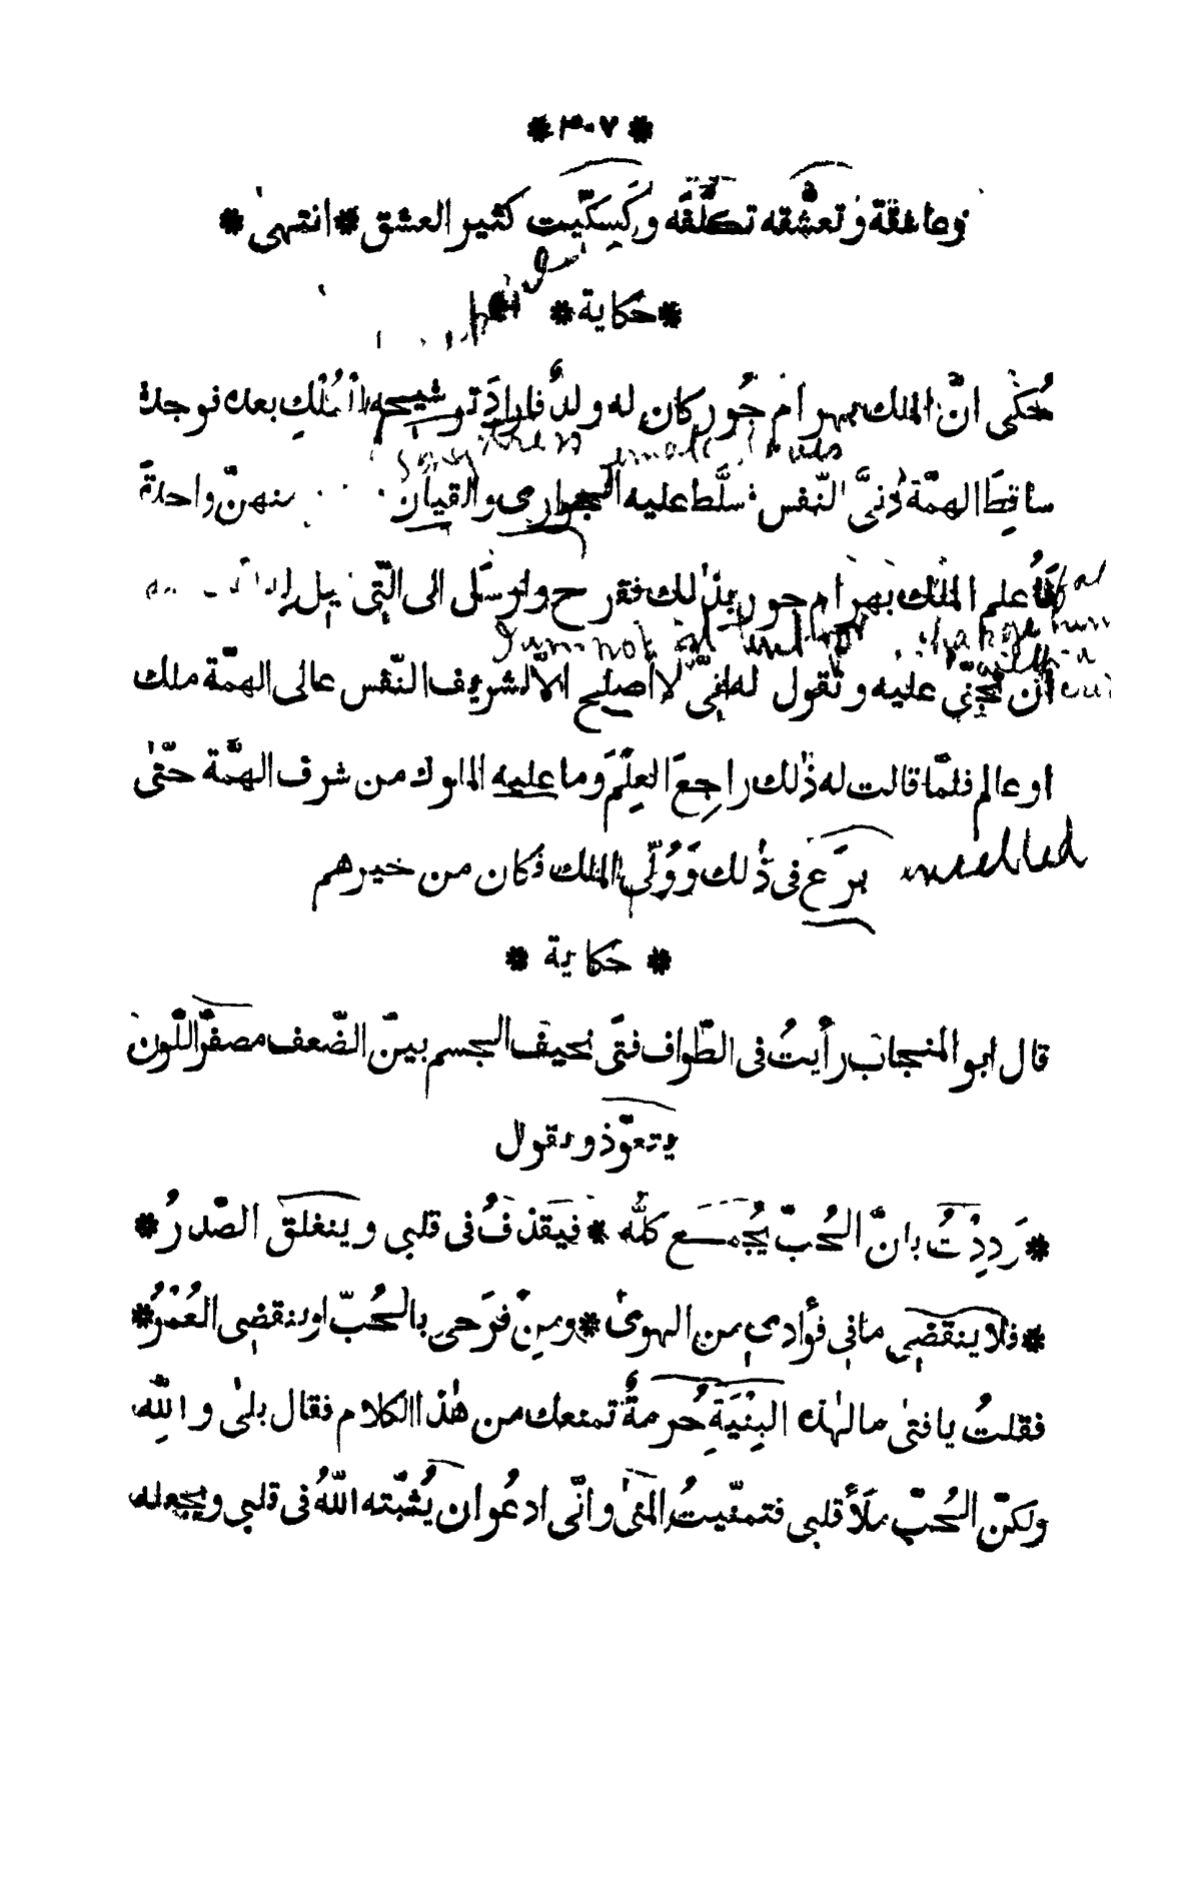 * ٣٠٧ *
وعاشقة وتعشّقه تكلّفه وكَسِكّيت كثير العشق * انتهىٰ *
* حكاية *
حُكى انّ الملك بهرام جُور كان له ولدٌ فاراد ترشيحه للمُلكِ بعده فوجدهُ
ساقِطَ الهمّة دَنىَّ النّفس فسلَّط عليه الجوارى والقيان منهنّ واحدةً
فلمّا علم الملك بهرام جور بذٰلك فرح وارسَل الى الّتى
أن تجنّى عليه وتقول له انّى لا اصلح الّا لشريف النّفس عالى الهمّة ملك
او عالم فلمّا قالت له ذٰلك راجعَ العِلْمَ وما عليه الملوك من شرف الهمّة حتّىٰ
برَع فى ذٰلك وَوُلّى الملك فكان من خيرهم
excelled
* حكاية *
قال ابو المنجاب رأيتُ فى الطّواف فتًى نحيف الجسم بيّن الضّعف مصفرّ اللّون
يتعوّذ ويقول
* رَدِدْتُ بانّ الحُبّ يُجمَع كلّه * فيَقذفُ فى قلبى وينغلق الصّدرُ *
* فلا ينقضى ما فى فؤادى من الهوىٰ * ومِن فرَحى بالحُبّ او ينقضى العُمْرُ *
فقلتُ يا فتىٰ ما لهٰذه البِنْيَةِ حُرمةٌ تمنعك من هٰذا الكلام فقال بلىٰ واللّٰهِ
ولكنّ الحُبّ ملَأ قلبى فتمنّيتُ المنىٰ وانّى ادعُو ان يُثبّته اللّٰهُ فى قلبى ويجعله